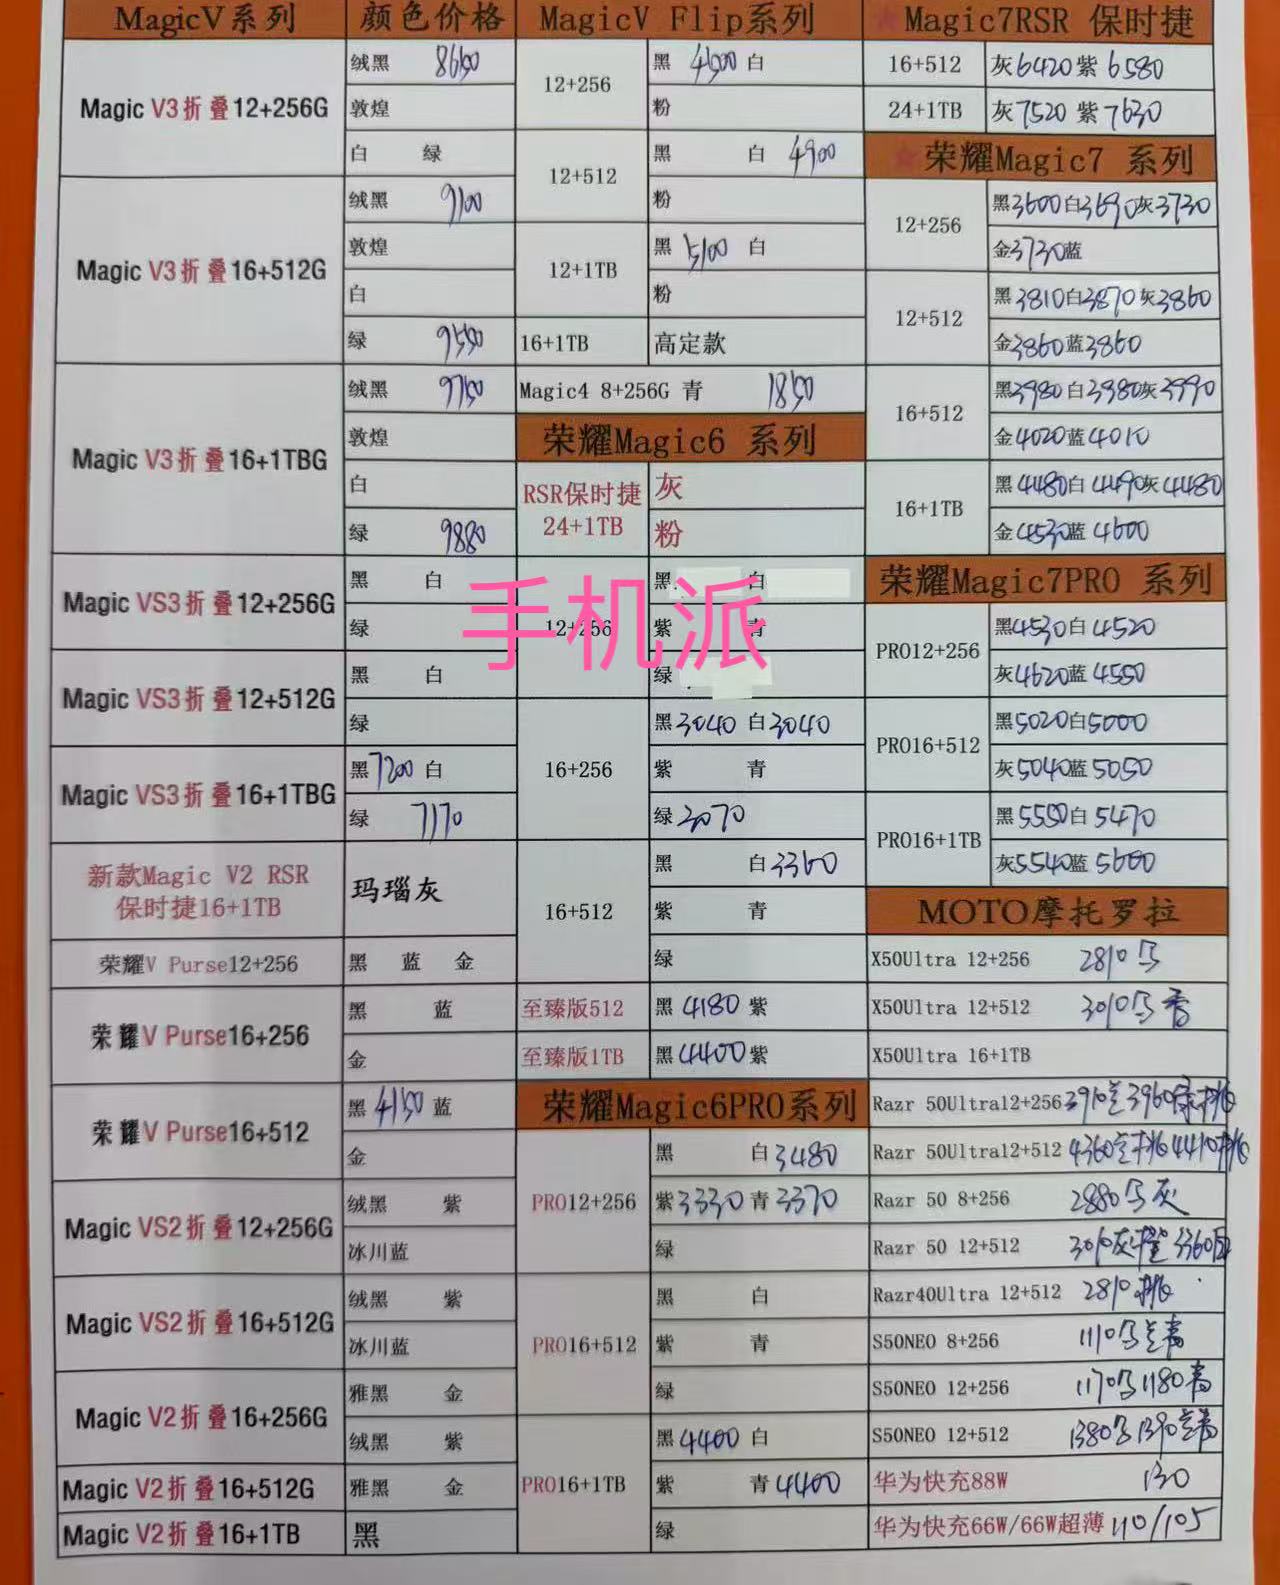 MagicV系列 颜色价格
Magic V3折叠12+256G 绒黑 8650
敦煌
白 绿
Magic V3折叠16+512G 绒黑 9100
敦煌
白
绿 9550
Magic V3折叠16+1TBG 绒黑 9750
敦煌
白
绿 9880
Magic VS3折叠12+256G 黑 白
绿
Magic VS3折叠12+512G 黑 白
绿
Magic VS3折叠16+1TBG 黑7200 白
绿 7170
新款Magic V2 RSR
保时捷16+1TB 玛瑙灰
荣耀V Purse12+256 黑 蓝 金
荣耀V Purse16+256 黑 蓝
金
荣耀V Purse16+512 黑 4150 蓝
金
Magic VS2折叠12+256G 绒黑 紫
冰川蓝
Magic VS2折叠16+512G 绒黑 紫
冰川蓝
Magic V2折叠16+256G 雅黑 金
绒黑 紫
Magic V2折叠16+512G 雅黑 金
Magic V2折叠16+1TB 黑
MagicV Flip系列
12+256 黑 4500 白
粉
12+512 黑 白 4900
粉
12+1TB 黑 5100 白
粉
16+1TB 高定款
Magic4 8+256G 青 1850
荣耀Magic6 系列
RSR保时捷 灰
24+1TB 粉
12+256 黑 白
紫 青
绿
手机派
16+256 黑3040 白3040
紫 青
绿3070
16+512 黑 白3360
紫 青
绿
至臻版512 黑 4180 紫
至臻版1TB 黑4400紫
荣耀Magic6PRO系列
PRO12+256 黑 白3480
紫3330 青3370
绿
PRO16+512 黑 白
紫 青
绿
PRO16+1TB 黑4400 白
紫 青4400
绿
Magic7RSR 保时捷
16+512 灰6420紫6580
24+1TB 灰7520 紫7630
荣耀Magic7 系列
12+256 黑3600白3690灰3730
金3730蓝
12+512 黑3810白3870灰3860
金3860蓝3860
16+512 黑3980白3980灰3990
金4020蓝4010
16+1TB 黑4480白4490灰4480
金4530蓝4600
荣耀Magic7PRO 系列
PRO12+256 黑4530白4520
灰4620蓝4550
PRO16+512 黑5020白5000
灰5040蓝5050
PRO16+1TB 黑5550白5470
灰5540蓝5600
MOTO摩托罗拉
X50Ultra 12+256 2810
X50Ultra 12+512 3010
X50Ultra 16+1TB
Razr 50Ultra12+256 3910 3960
Razr 50Ultra12+512 4360 4410
Razr 50 8+256 2880 灰
Razr 50 12+512 3010灰 3360
Razr40Ultra 12+512 2810桃
S50NEO 8+256 1110
S50NEO 12+256 1170 1180
S50NEO 12+512 1380 1390
华为快充88W 130
华为快充66W/66W超薄 110/105